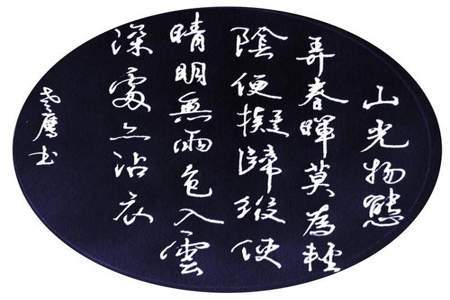 山光物態
弄春暉莫為輕
陰便擬歸縱使
晴明無雨色入雲
深處亦沾衣
鹰书